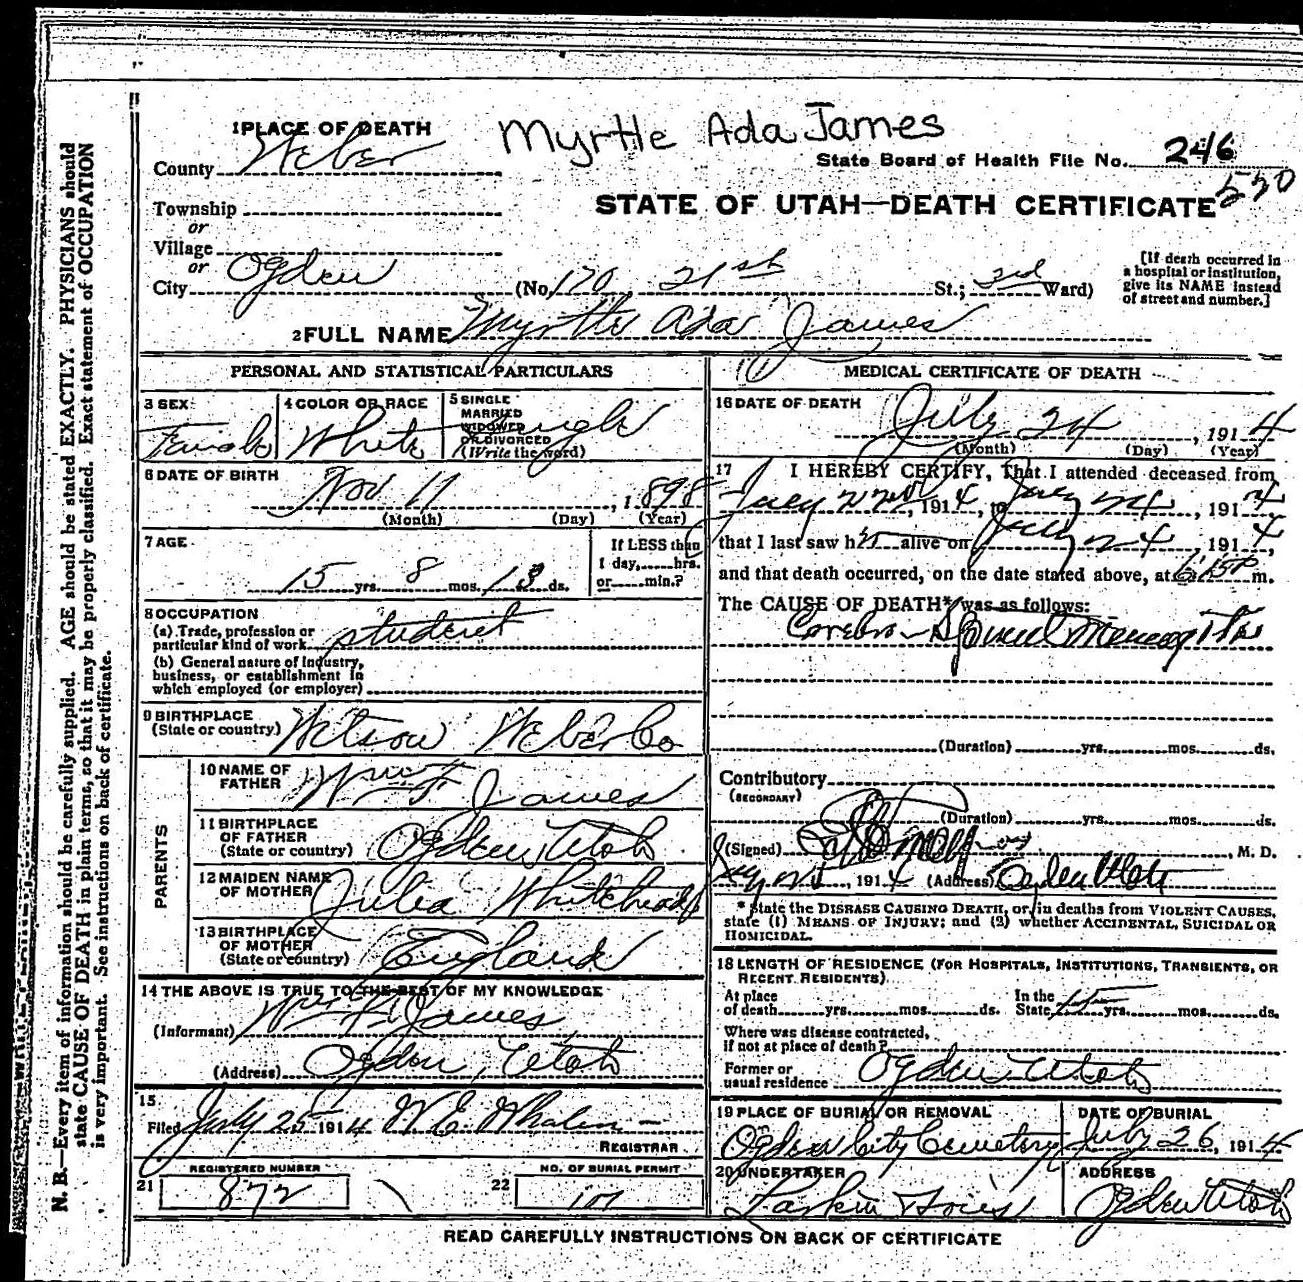 Myrtle Ada James
1 PLACE OF DEATH
County Weber
State Board of Health File No. 246
530
STATE OF UTAH—DEATH CERTIFICATE
Township
or
Village
or
City Ogden (No. 170 21st St.; 3rd Ward)
[If death occurred in a hospital or institution, give its NAME instead of street and number.]
2 FULL NAME Myrtle Ada James
PERSONAL AND STATISTICAL PARTICULARS
3 SEX Female
4 COLOR OR RACE White
5 SINGLE MARRIED WIDOWED OR DIVORCED (Write the word) Single
6 DATE OF BIRTH Nov 11, 1898
(Month) (Day) (Year)
7 AGE 15 yrs. 8 mos. 13 ds.
If LESS than 1 day, hrs. or min.?
8 OCCUPATION
(a) Trade, profession or particular kind of work student
(b) General nature of Industry, business, or establishment in which employed (or employer)
9 BIRTHPLACE (State or country) Weber Co
PARENTS
10 NAME OF FATHER Wm F James
11 BIRTHPLACE OF FATHER (State or country) Ogden, Utah
12 MAIDEN NAME OF MOTHER Julia Whitehead
13 BIRTHPLACE OF MOTHER (State or country) England
14 THE ABOVE IS TRUE TO THE BEST OF MY KNOWLEDGE
(Informant) James
(Address) Ogden, Utah
15
Filed July 25 1914 W.E. Whalen
REGISTRAR
REGISTERED NUMBER
21 872
NO. OF BURIAL PERMIT
22
MEDICAL CERTIFICATE OF DEATH
16 DATE OF DEATH July 24, 1914
(Month) (Day) (Year)
17 I HEREBY CERTIFY, That I attended deceased from
July 22nd, 1914, to July 24, 1914,
that I last saw h alive on July 24, 1914,
and that death occurred, on the date stated above, at 6:15 P m.
The CAUSE OF DEATH* was as follows:
Cerebro-Spinal Meningitis
(Duration) yrs. mos. ds.
Contributory
(SECONDARY)
(Duration) yrs. mos. ds.
(Signed) , M. D.
, 1914 (Address) Ogden Utah
* State the DISEASE CAUSING DEATH, or, in deaths from VIOLENT CAUSES, state (1) MEANS OF INJURY; and (2) whether ACCIDENTAL, SUICIDAL OR HOMICIDAL.
18 LENGTH OF RESIDENCE (FOR HOSPITALS, INSTITUTIONS, TRANSIENTS, OR RECENT RESIDENTS)
At place of death yrs. mos. ds. In the State 15 yrs. mos. ds.
Where was disease contracted, if not at place of death?
Former or usual residence Ogden Utah
19 PLACE OF BURIAL OR REMOVAL Ogden City Cemetery
DATE OF BURIAL July 26, 1914
20 UNDERTAKER Larkin
ADDRESS Ogden Utah
READ CAREFULLY INSTRUCTIONS ON BACK OF CERTIFICATE
N. B.—Every item of information should be carefully supplied. AGE should be stated EXACTLY. PHYSICIANS should
state CAUSE OF DEATH in plain terms, so that it may be properly classified. Exact statement of OCCUPATION
is very important. See instructions on back of certificate.